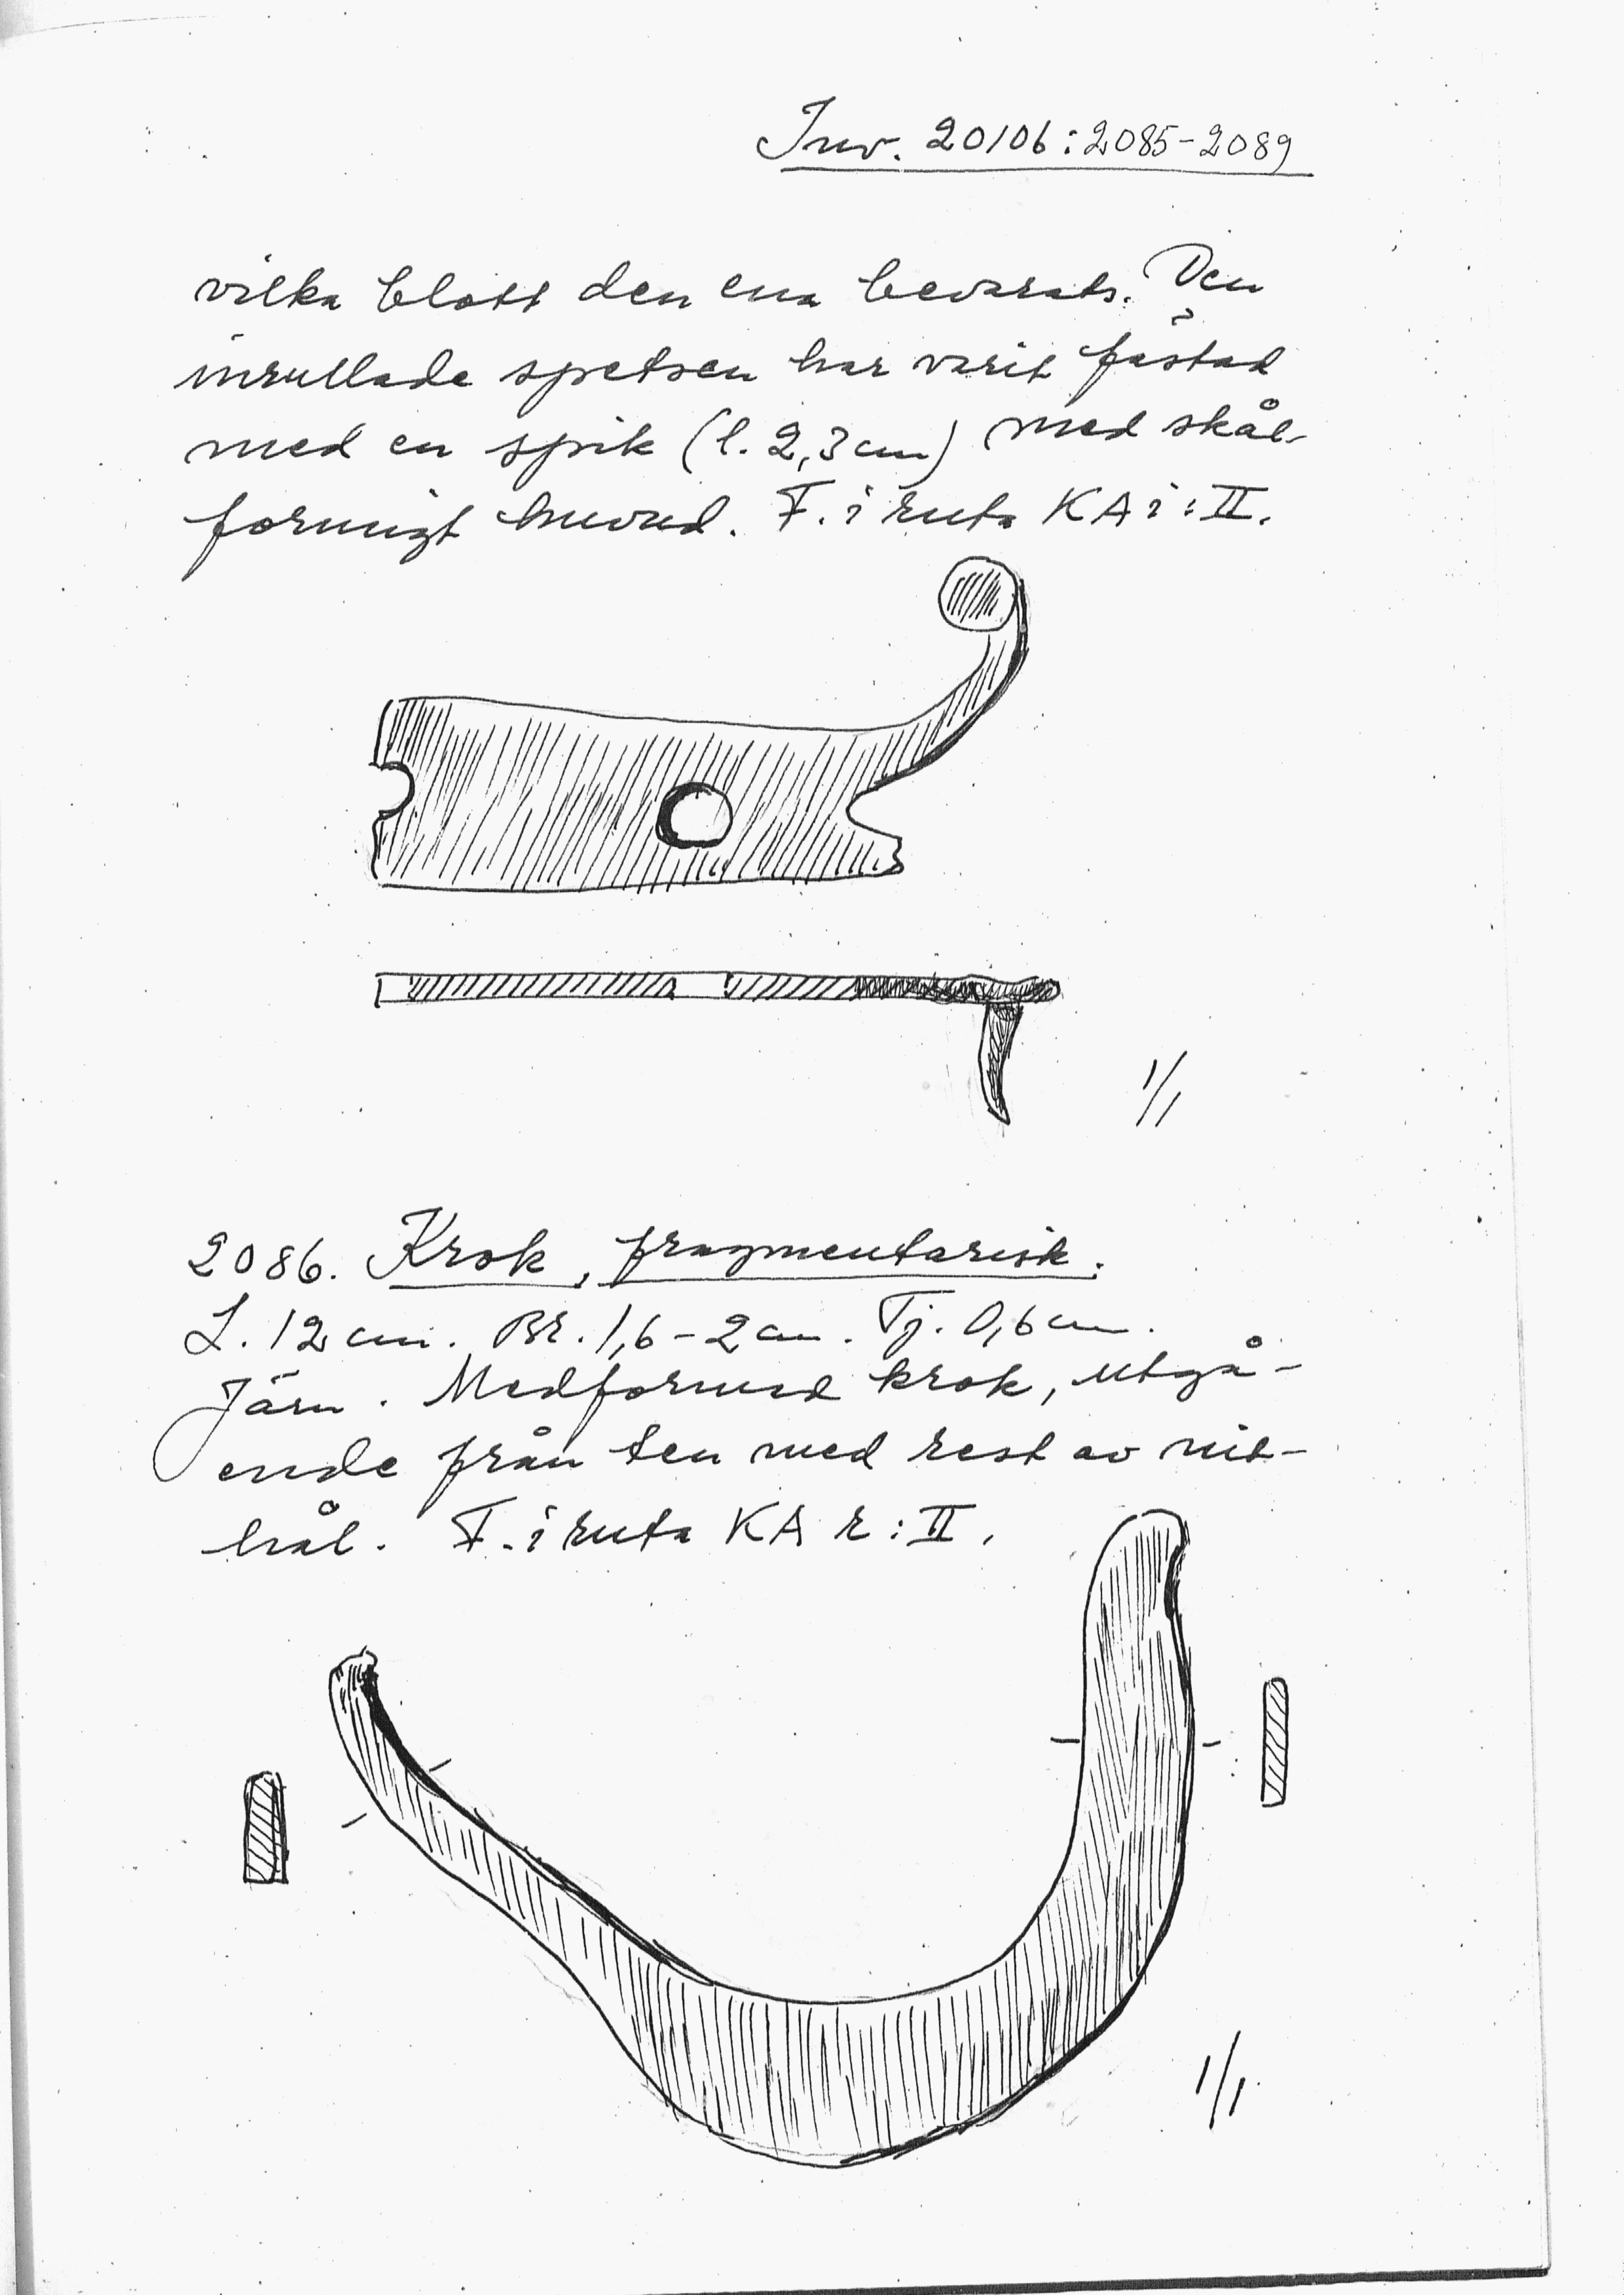 Inv. 20106:2085-2089
vilka blott den ena bevarats. Den
inrullade spetsen har varit fästad
med en spik (l. 2,3 cm) med skål-
formigt huvud. F. i ruta KA i:II.
1/1
2086. Krok, fragmentarisk.
L. 12 cm. Br. 1,6-2 cm. Tj. 0,6 cm.
Järn. Medformad krok, utgå-
ende från ten med rest av nit-
hål. F. i ruta KA r:II.
1/1